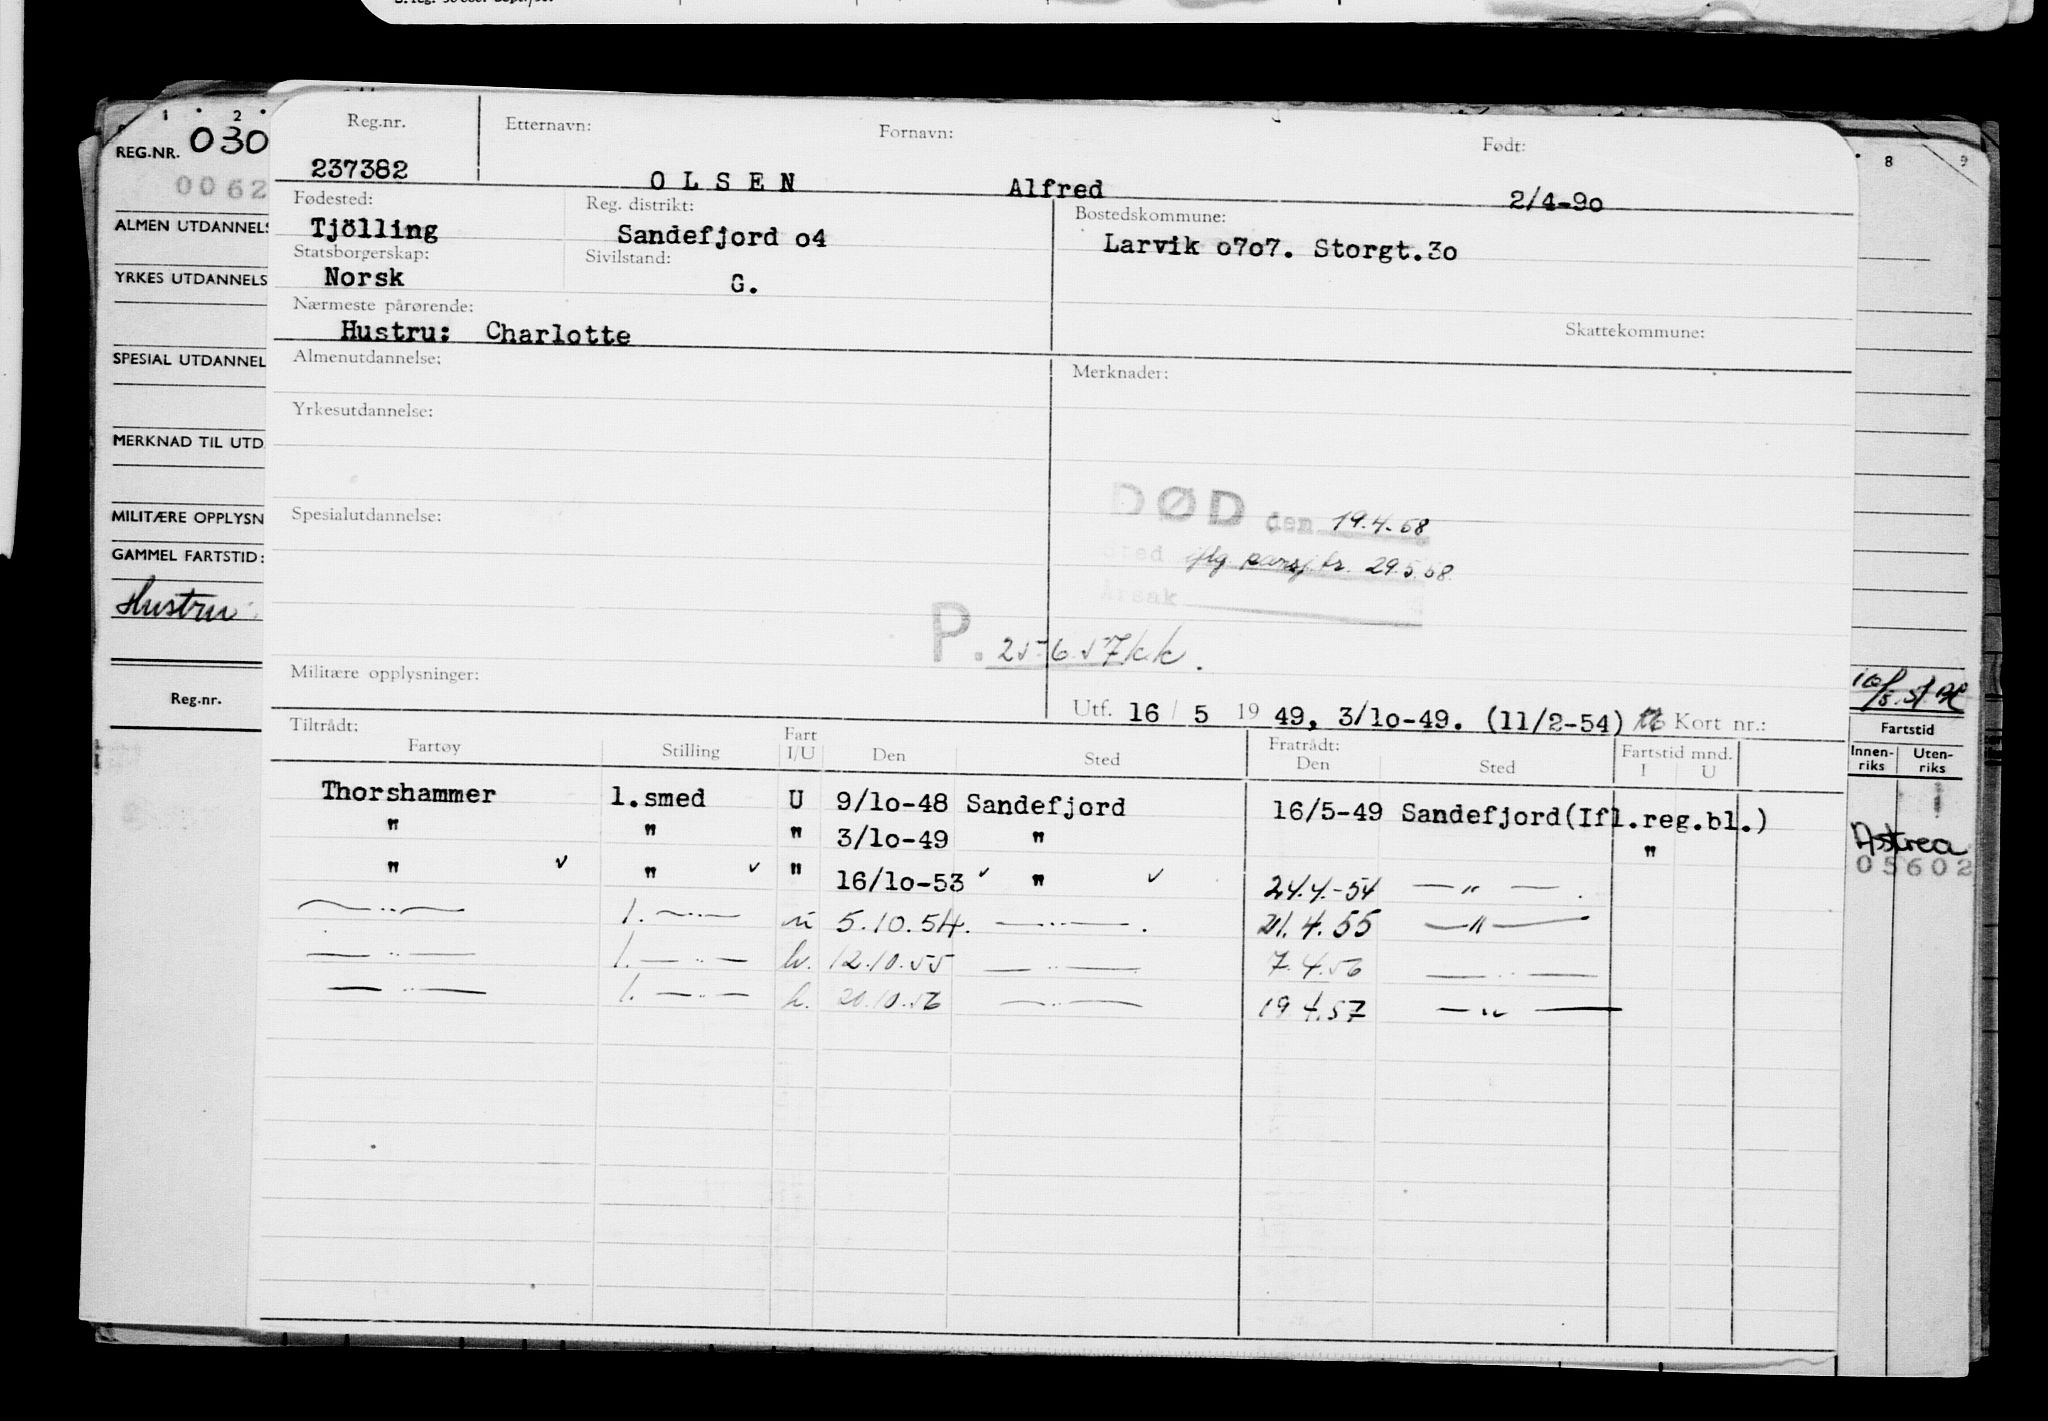 1 2 8 9
REG.NR. 030
0062
ALMEN UTDANNELS
YRKES UTDANNELS
SPESIAL UTDANNEL
MERKNAD TIL UTD
MILITÆRE OPPLYSN
GAMMEL FARTSTID:
Hustru
Reg.nr.
Reg.nr. Etternavn: Fornavn: Født:
237382 O L S E N Alfred 2/4-9o
Fødested: Reg. distrikt: Bostedskommune:
Tjölling Sandefjord o4 Larvik o7o7. Storgt.3o
Statsborgerskap: Sivilstand:
Norsk G.
Nærmeste pårørende: Skattekommune:
Hustru: Charlotte
Almenutdannelse: Merknader:
Yrkesutdannelse:
Spesialutdannelse:
DØD den 19.4.68
Sted iflg 29.5.68.
Årsak
P. 25-6.57
Militære opplysninger:
Utf. 16 / 5 19 49, 3/1o-49. (11/2-54) Kort nr.:
Tiltrådt: Fratrådt:
Fartøy Stilling Fart I/U Den Sted Den Sted Fartstid mnd. I U
Thorshammer 1.smed U 9/1o-48 Sandefjord 16/5-49 Sandefjord(Ifl.reg.bl.)
" " " 3/1o-49 " "
" ✓ " ✓ " 16/1o-53 ✓ " ✓ 24.4.-54 —"—.
—"— 1. —"— u 5.10.54. —"—. 21.4.55 —"—
—"— 1. —"— 12.10.55 —"— 7.4.56 —"—
—"— 1. —"— 20.10.56 —"— 19 4.57 —"—
Fartstid
Innen-riks Uten-riks
Astrea
05602